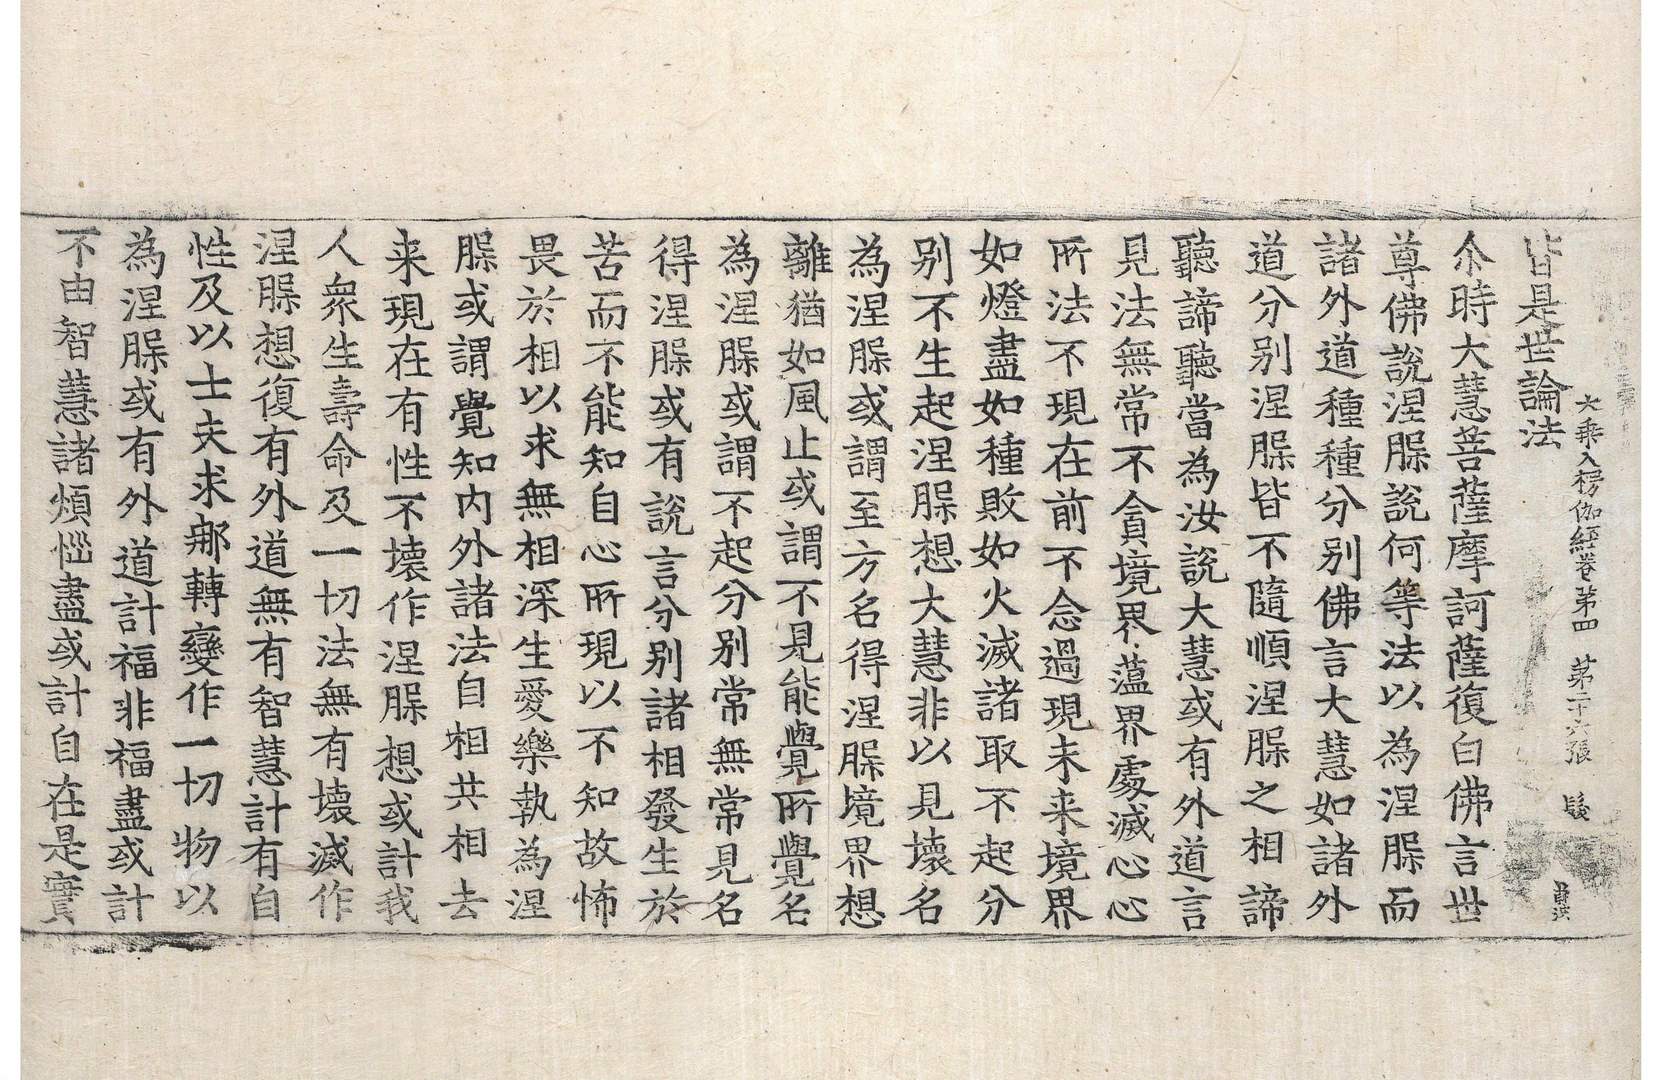 大乘入楞伽經卷苐四 苐二十六張 髮
皆是世論法
尒時大慧菩薩摩訶薩復白佛言世
尊佛說涅槃說何等法以為涅槃而
諸外道種種分別佛言大慧如諸外
道分別涅槃皆不隨順涅槃之相諦
聽諦聽當為汝說大慧或有外道言
見法無常不貪境界蘊界處滅心心
所法不現在前不念過現未来境界
如燈盡如種敗如火滅諸取不起分
別不生起涅槃想大慧非以見壞名
為涅槃或謂至方名得涅槃境界想
離猶如風止或謂不見能覺所覺名
為涅槃或謂不起分別常無常見名
得涅槃或有說言分別諸相發生於
苦而不能知自心所現以不知故怖
畏於相以求無相深生愛樂執為涅
槃或謂覺知內外諸法自相共相去
来現在有性不壞作涅槃想或計我
人衆生壽命及一切法無有壞滅作
涅槃想復有外道無有智慧計有自
性及以士夫求那轉變作一切物以
為涅槃或有外道計福非福盡或計
不由智慧諸煩惱盡或計自在是實